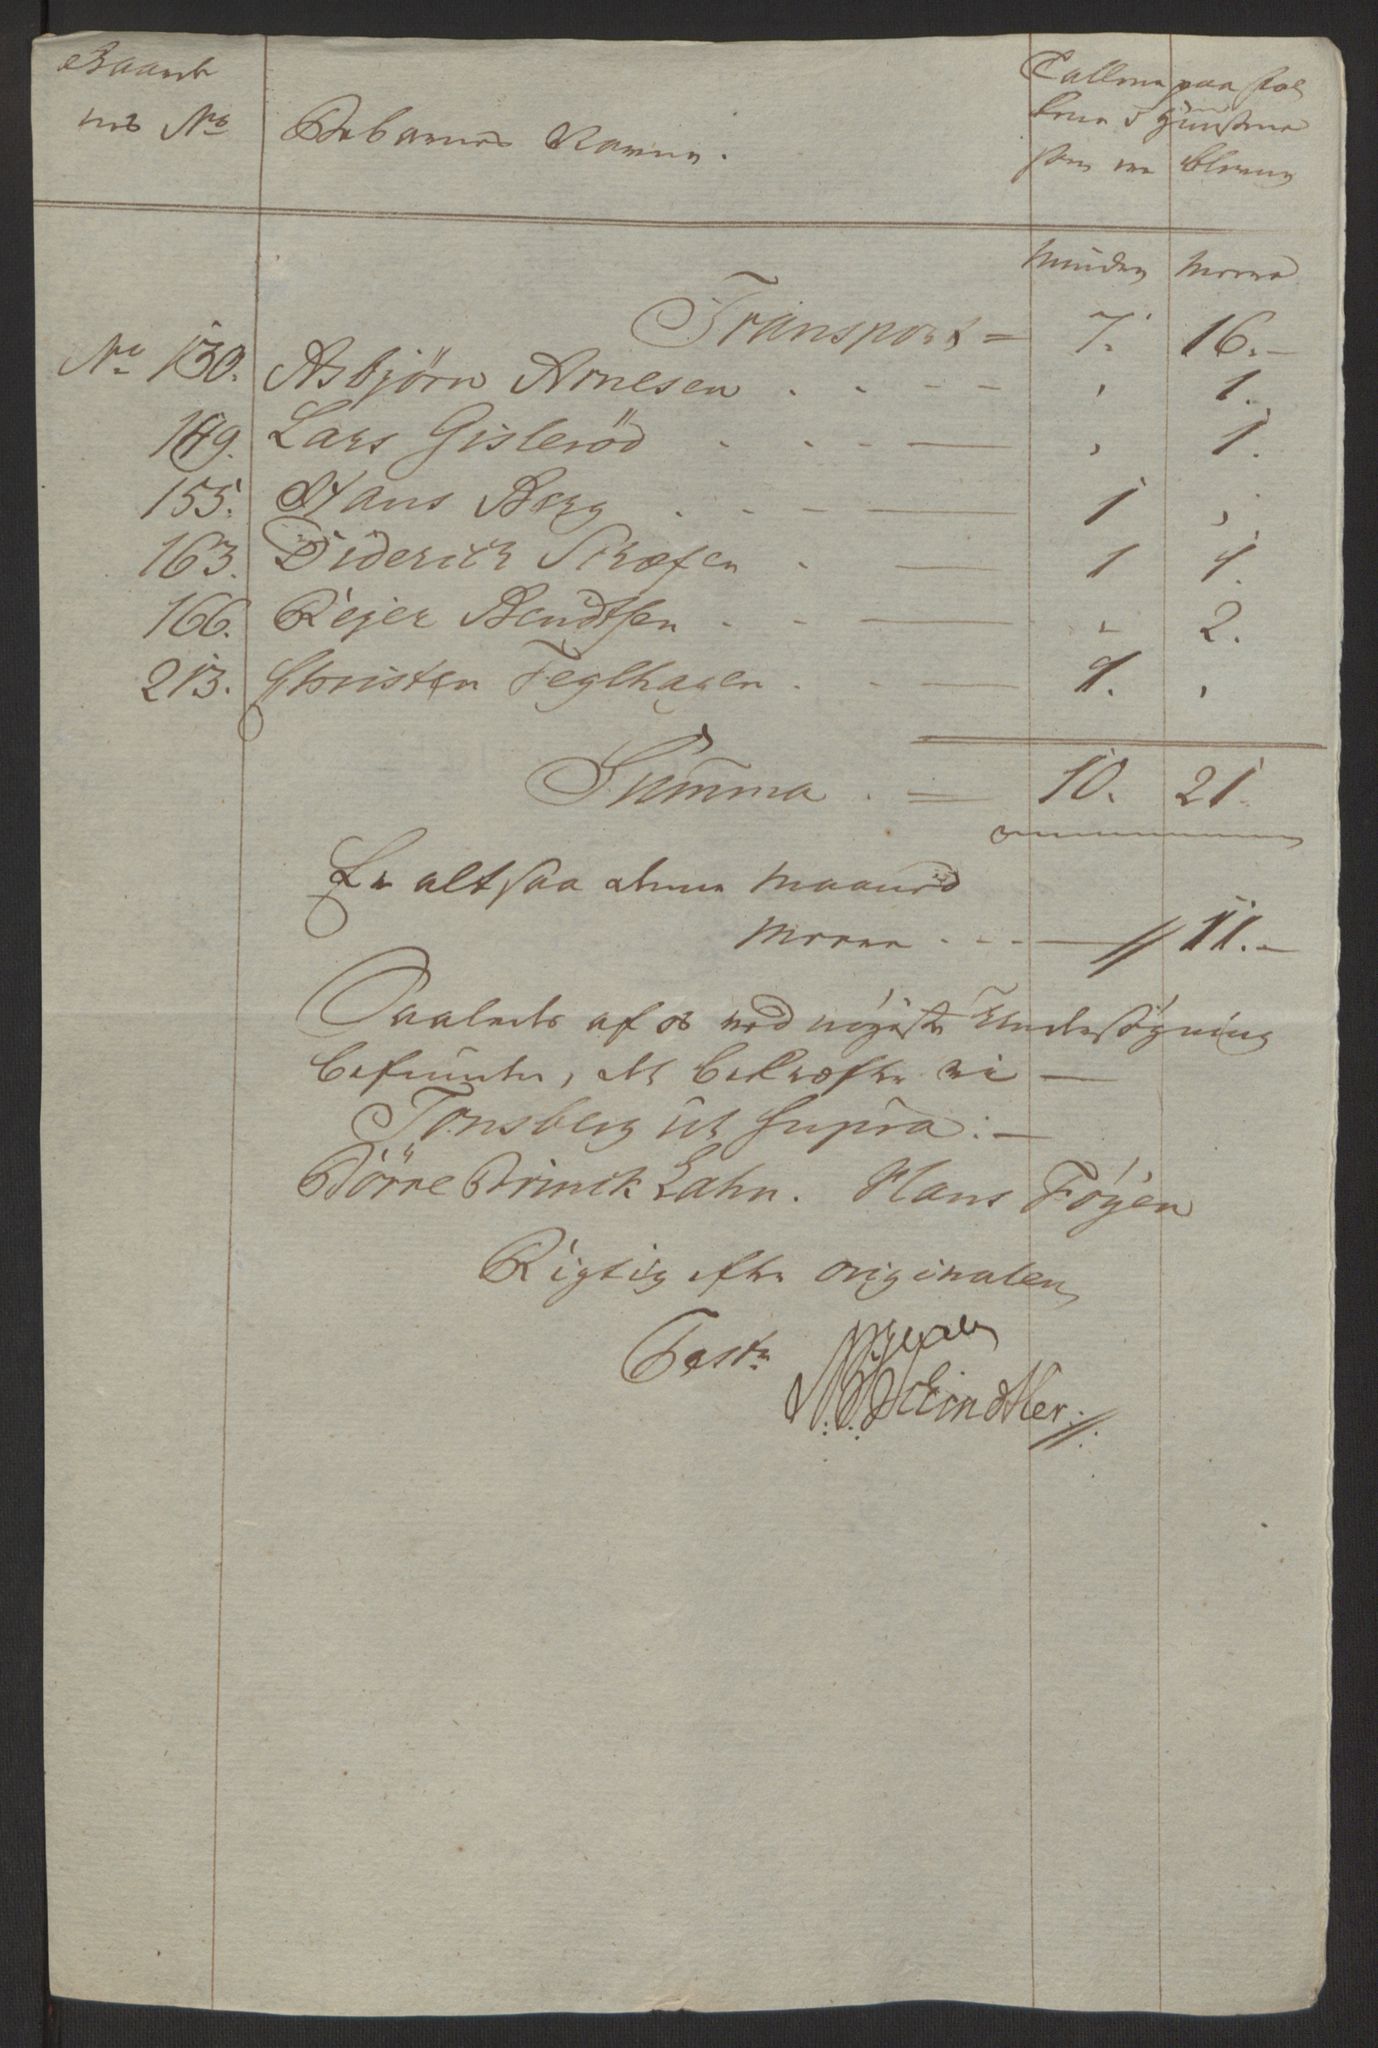 Gaard
nes No
Beboernes Navne.
Tallene paa fol
kene i Huusene
som ere bleven
Minder Meere
Transport = 7. 16.-
No 130. Asbjörn Arnesen . . - - , 1.
149. Lars Gisleröd . . - — , 1.
155. Hans Berg . - - — 1 ,
163. Diderich Skræfen . — 1 1.
166. Rejer Bendtsen . - — „ 2.
213. Christen Teglhagen . - — 1. ,
Summa . = 10. 21.
Er altsaa denne Maaned
meere . - - — // 11.-
Saaledes af os ved nöyeste Undersögning
befunden, det bekræfter vi —
Tonsberg ut Supra. —
Börre Brinck Lahn. Hans Föyen
Rigtig efter originalen
Test: